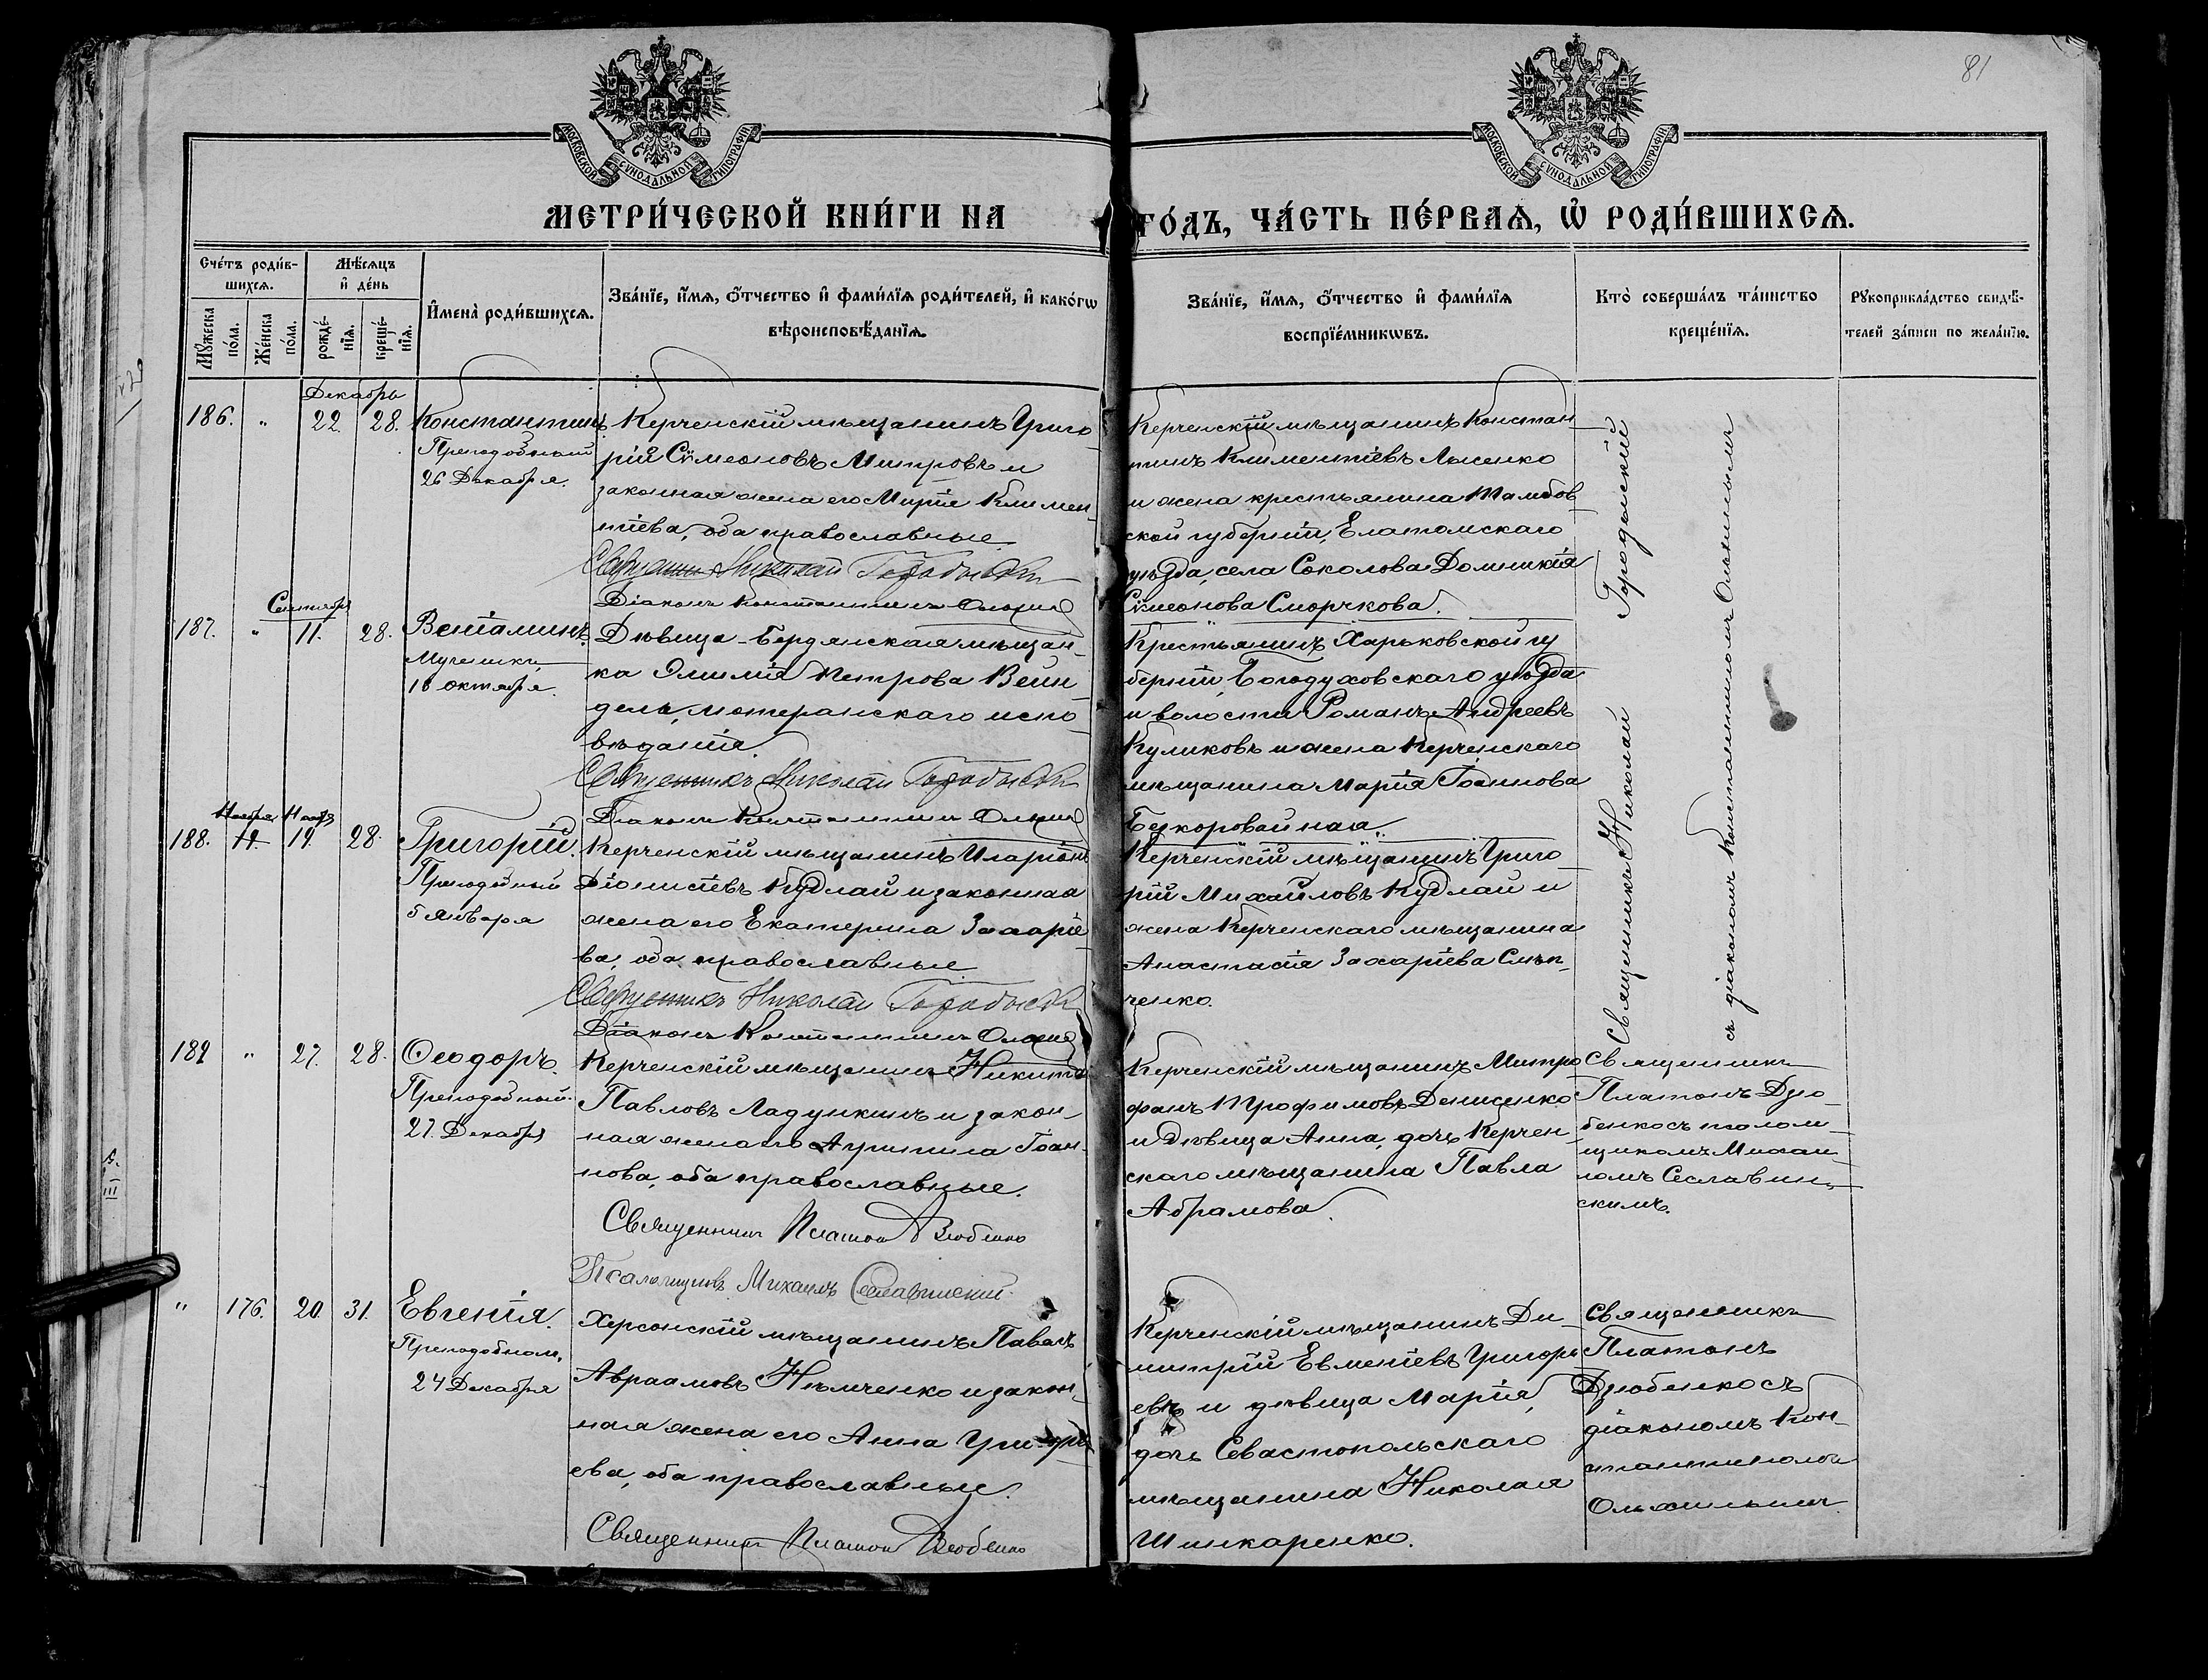 81
МОСКОВСКОЙ СѴНОДАЛЬНОЙ ТИПОГРАФІИ
МОСКОВСКОЙ СѴНОДАЛЬНОЙ ТИПОГРАФІИ
МЕТРИ́ЧЕСКОЙ КНИ́ГИ НА
ГО́ДЪ, ЧА́СТЬ ПЕ́РВАѦ, Ѡ҆ РОДИ́ВШИХСѦ.
Сче́тъ роди́в-
шихсѧ.
Мꙋ́жеска по́ла.
Же́нска по́ла.
Мѣ́сѧцъ
и҆ де́нь
рожде́-нїѧ.
креще́-нїѧ.
И҆мена̀ роди́вшихсѧ.
Зва́нїе, и҆́мѧ, ѻ҆́тчество и҆ фами́лїѧ роди́телей, и҆ како́гѡ
вѣроисповѣ́данїѧ.
Зва́нїе, и҆́мѧ, ѻ҆́тчество и҆ фами́лїѧ
воспрїе́мникѡвъ.
Кто̀ соверша́лъ та́инство
креще́нїѧ.
Рꙋкоприкла́дство свидѣ́-
телей за́писи по жела́нїю.
Декабрь
186. " 22. 28. Константинъ.
Преподобный
26 Декабря.
Керченскій мѣщанинъ Григо
рій Сѵмеоновъ Митровъ и
законная жена его Марія Климен-
тіева, оба православные.
Священникъ Николай Городыскій
Діаконъ Константинъ
Керченскій мѣщанинъ Констан
тинъ Климентіевъ Лысенко
и жена крестьянина Тамбов
ской губерніи, Елатомскаго
уѣзда, села Соколова Домникія
Сѵмеонова Сморчкова.
Сентября
187. " 11. 28. Веніаминъ.
Мученикъ
18 октября.
Дѣвица-Бердянская мѣщан-
ка Эмилія Петрова Вейн-
дель, лютеранскаго испо-
вѣданія.
Священникъ Николай Городыскій
Діаконъ Константинъ
Крестьянинъ Харьковской гу
берніи, Богодуховскаго уѣзда
и волости Романъ Андреевъ
Куликовъ и жена Керченскаго
мѣщанина Марія Іоаннова
Безкоровайная.
Ноября Ноября
188. 19. 19. 28. Григорій.
Преподобный
5 января
Керченскій мѣщанинъ Иларіонъ
Діонисіевъ Кудлай и законная
жена его Екатерина Захаріе
ва, оба православные.
Священникъ Николай Городыскій
Діаконъ Константинъ
Керченскій мѣщанинъ Григо
рій Михайловъ Кудлай и
жена Керченскаго мѣщанина
Анастасія Захаріева Слѣп-
ченко.
Священникъ Николай Городыскій
съ діакономъ Константиномъ Ольхинымъ
189 " 27. 28. Ѳеодоръ.
Преподобный
27. Декабря
Керченскій мѣщанинъ Никита
Павловъ Ладункинъ и закон-
ная жена его Агрипина Іоан-
нова, оба православные.
Священникъ Платонъ Дзюбенко
Псаломщикъ Михаилъ Сеславинскій
Керченскій мѣщанинъ Митро
фанъ Трофимовъ Денисенко
и дѣвица Анна, дочь Керчен-
скаго мѣщанина Павла
Абрамова.
Священникъ
Платонъ Дзю-
бенко съ псалом-
щикомъ Михаи-
ломъ Сеславин-
скимъ.
" 176. 20. 31. Евгенія.
Преподобном.
24 Декабря
Херсонскій мѣщанинъ Павелъ
Авраамовъ Нѣмченко и закон-
ная жена его Анна Григорь
ева, оба православные.
Священникъ Платонъ Дзюбенко
Керченскій мѣщанинъ Ди-
митрій Евменіевъ Григорь
евъ и дѣвица Марія,
дочь Севастопольскаго
мѣщанина Николая
Шинкаренко.
Священникъ
Платонъ
Дзюбенко съ
діакономъ Кон-
стантиномъ
Ольхинымъ